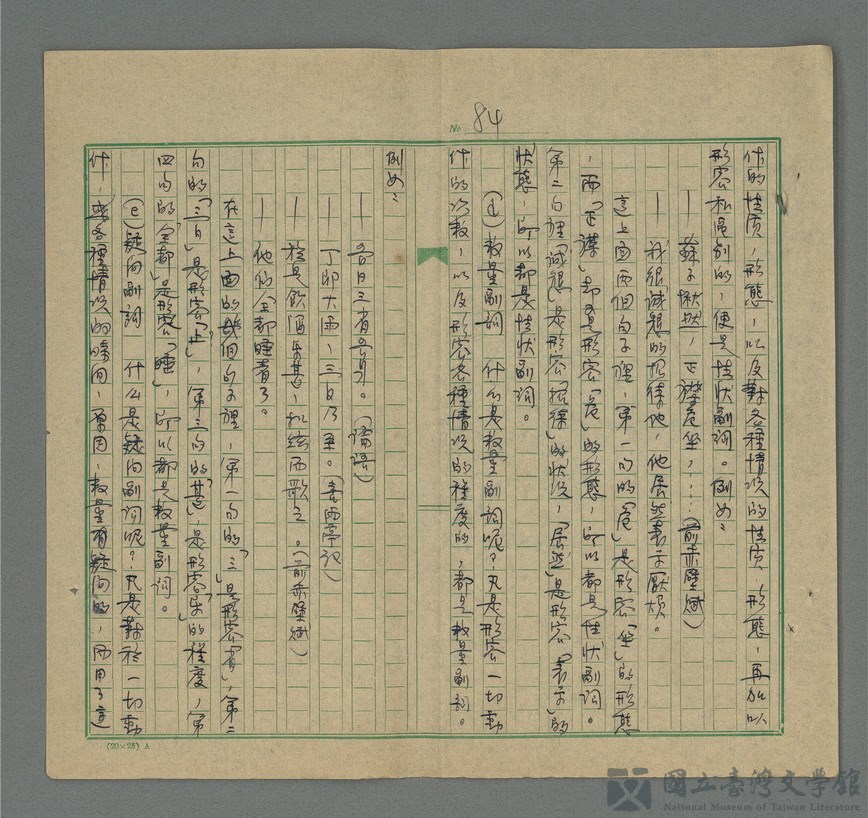 No. 84
作的性質，形態，以及對各種情況的性質，形態，再加以
形容和區別的，便是性狀副詞。例如：
——蘇子愀然，正襟危坐，……（前赤壁賦）
——我很誠懇的招待他，他居然表示厭煩。
這上面兩個句子裡，第一句的「危」是形容「坐」的形態
，而「正襟」却是形容「危」的形態，所以都是性狀副詞。
第二句裡「誠懇」是形容「招待」的狀況，「居然」是形容「表示」的
狀態，所以都是性狀副詞。
(d)數量副詞　什么是數量副詞呢？凡是形容一切動
作的次數，以及形容各種情況的程度的，都是數量副詞。
例如：
——吾日三省吾身。（論語）
——丁卯大雨，三日乃至。（喜雨亭記）
——於是飲酒樂甚，扣絃而歌之。（前赤壁賦）
——他們全都睡着了。
在這上面的幾個句子裡，第一句的「三」是形容「省」，第二
句的「三日」是形容「止」，第三句的「甚」，是形容「樂」的程度，第
四句的「全都」是形容「睡」，所以都是數量副詞。
(e)疑問副詞　什么是疑問副詞呢？凡是對於一切動
作，或各種情況的時間，原因，數量有疑問的，而用了這
(20×25) A
國立臺灣文學館
National Museum of Taiwan Literature